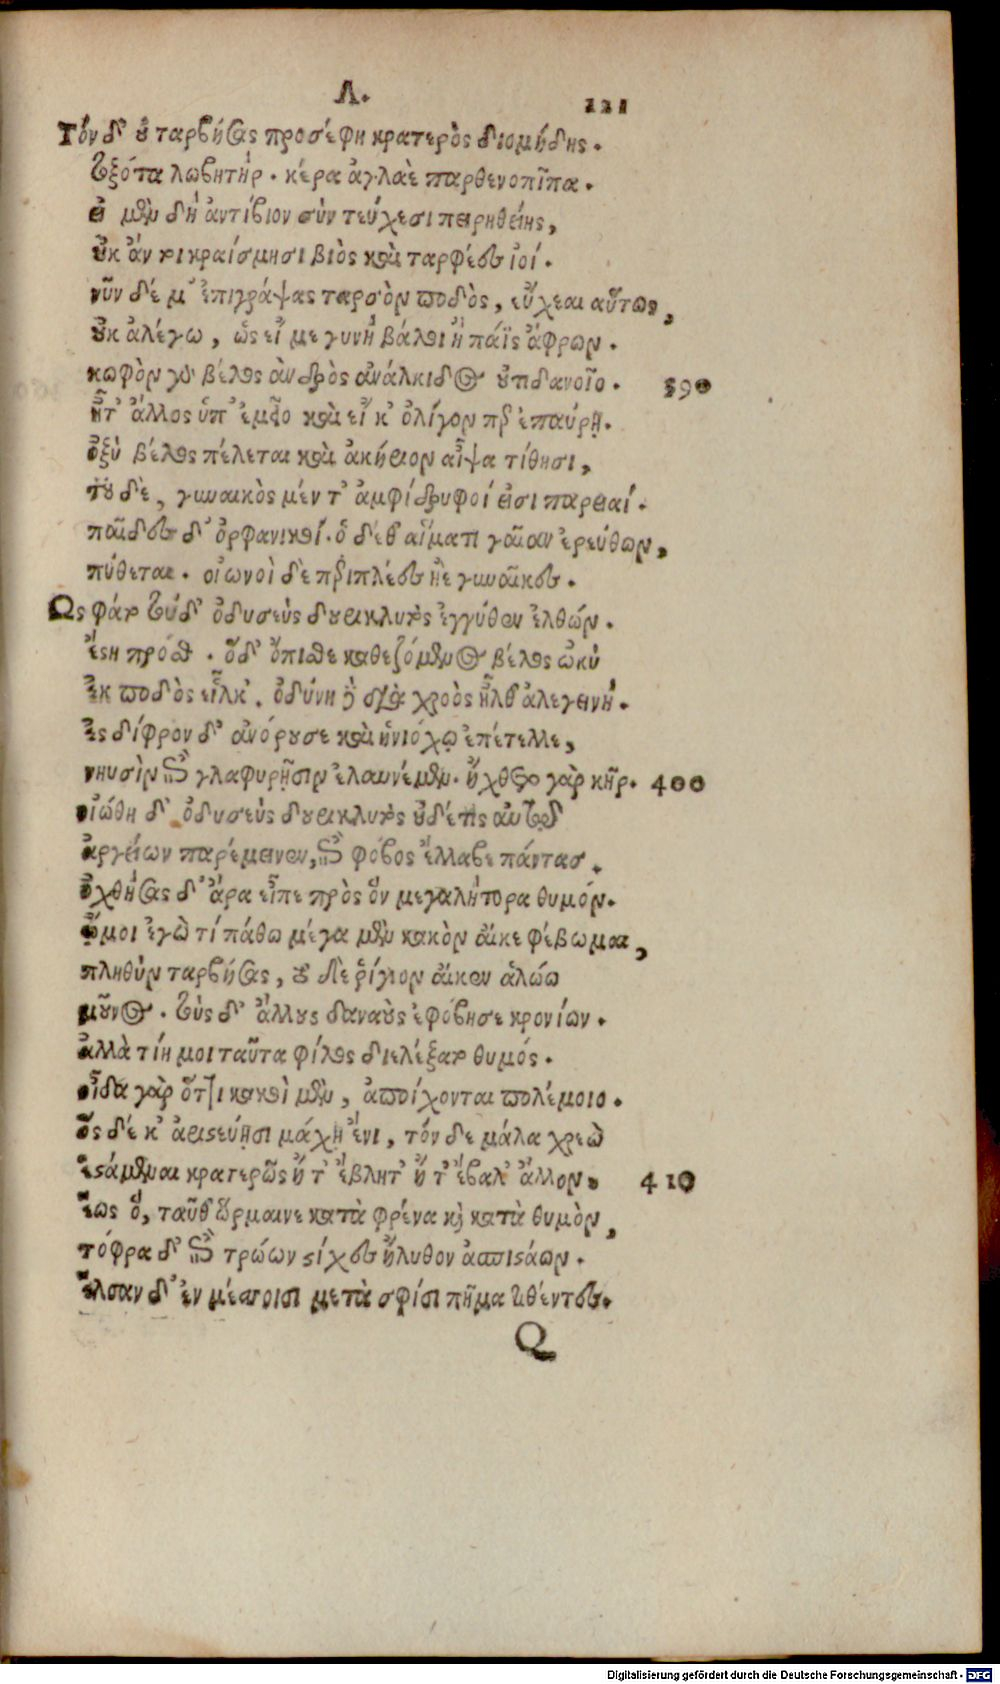 Λ.
121
Τὸν δ' οὐ ταρβήσας προσέφη κρατερὸς διομήδης.
Τοξότα λωβητὴρ. κέρα ἀγλαὲ παρθενοπῖπα.
εἰ μὲν δὴ ἀντίβιον σὺν τεύχεσι πειρηθείης,
οὐκ ἄν τι κραίσμῃσι βιὸς καὶ ταρφέες ἰοί.
νῦν δέ μ' ἐπιγράψας ταρσὸν ποδὸς, εὔχεαι αὕτως,
οὐκ ἀλέγω, ὡς εἴ με γυνὴ βάλοι ἢ πάϊς ἄφρων.
κωφὸν γὰρ βέλος ἀνδρὸς ἀνάλκιδος οὐτιδανοῖο. 390
ἦτ' ἄλλος ὑπ' ἐμεῖο καὶ εἴ κ' ὀλίγον περ ἐπαύρῃ.
ὀξὺ βέλος πέλεται καὶ ἀκήριον αἶψα τίθησι,
τοῦ δὲ, γυναικὸς μέν τ' ἀμφίδρυφοί εἰσι παρειαί.
παῖδες δ' ὀρφανικοί. ὁ δέ θ' αἵματι γαῖαν ἐρεύθων,
πύθεται. οἰωνοὶ δὲ περιπλέες ἠὲ γυναῖκες.
Ως φάτ τοῦ δ' ὀδυσεὺς δουρικλυτὸς ἐγγύθεν ἐλθών.
ἔστη πρόσθ. ὁ δ' ὄπισθε καθεζόμενος βέλος ὠκὺ
ἐκ ποδὸς εἷλκ'. ὀδύνη δὲ διὰ χροὸς ἦλθ' ἀλεγεινή.
ἐς δίφρον δ' ἀνόρουσε καὶ ἡνιόχῳ ἐπέτελλε,
νηυσὶν ἐπὶ γλαφυρῇσιν ἐλαυνέμεν. ἤχθετο γὰρ κῆρ. 400
οἰώθη δ' ὀδυσεὺς δουρικλυτὸς οὐδέ τις αὐτῷ
ἀργείων παρέμεινεν, ἐπεὶ φόβος ἔλλαβε πάντας.
ὀχθήσας δ' ἄρα εἶπε πρὸς ὃν μεγαλήτορα θυμόν.
ὤμοι ἐγὼ τί πάθω μέγα μὲν κακὸν αἴκε φέβωμαι,
πληθὺν ταρβήσας, τὸ δὲ ῥίγιον αἴκεν ἁλώω
μοῦνος. τοὺς δ' ἄλλους δαναοὺς ἐφόβησε κρονίων.
ἀλλὰ τίη μοι ταῦτα φίλος διελέξατ θυμός.
οἶδα γὰρ ὅττι κακοὶ μὲν, ἀποίχονται πολέμοιο.
ὃς δέ κ' ἀριστεύῃσι μάχῃ ἔνι, τόν δε μάλα χρεὼ
ἑστάμεναι κρατερῶς ἤ τ' ἔβλητ' ἤ τ' ἔβαλ' ἄλλον. 410
ἕως ὁ, ταῦθ' ὥρμαινε κατὰ φρένα καὶ κατὰ θυμὸν,
τόφρα δ' ἐπὶ τρώων στίχες ἤλυθον ἀσπιστάων.
ἔλσαν δ' ἐν μέσσοισι μετὰ σφίσι πῆμα τιθέντες.
Q
Digitalisierung gefördert durch die Deutsche Forschungsgemeinschaft - DFG